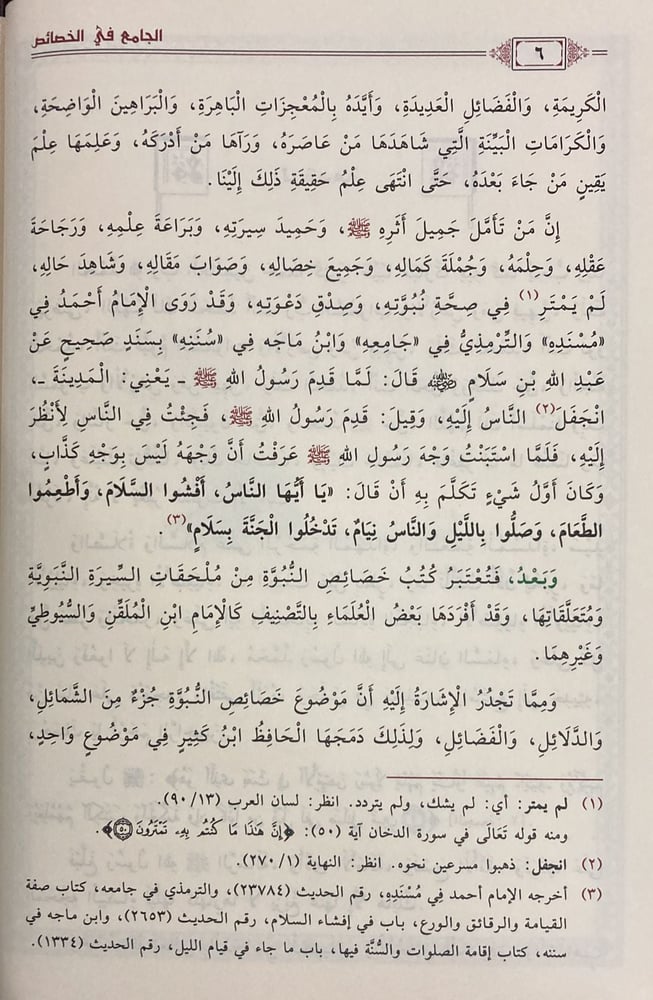 الجامع في الخصائص
٦
الْكَرِيمَةِ، وَالْفَضَائِلِ الْعَدِيدَةِ، وَأَيَّدَهُ بِالْمُعْجِزَاتِ الْبَاهِرَةِ، وَالْبَرَاهِينَ الْوَاضِحَةِ،
وَالْكَرَامَاتِ الْبَيِّنَةِ الَّتِي شَاهَدَهَا مَنْ عَاصَرَهُ، وَرَآهَا مَنْ أَدْرَكَهُ، وَعَلِمَهَا عِلْمَ
يَقِينٍ مَنْ جَاءَ بَعْدَهُ، حَتَّى انْتَهَى عِلْمُ حَقِيقَةِ ذَلِكَ إِلَيْنَا.
إِنَّ مَنْ تَأَمَّلَ جَمِيلَ أَثَرِهِ ﷺ، وَحَمِيدَ سِيرَتِهِ، وَبَرَاعَةَ عِلْمِهِ، وَرَجَاحَةَ
عَقْلِهِ، وَحِلْمَهُ، وَجُمْلَةَ كَمَالِهِ، وَجَمِيعَ خِصَالِهِ، وَصَوَابَ مَقَالِهِ، وَشَاهِدَ حَالِهِ،
لَمْ يَمْتَرِ(١) فِي صِحَّةِ نُبُوَّتِهِ، وَصِدْقِ دَعْوَتِهِ، وَقَدْ رَوَى الْإِمَامُ أَحْمَدُ فِي
«مُسْنَدِهِ» وَالتِّرْمِذِيُّ فِي «جَامِعِهِ» وَابْنُ مَاجَه فِي «سُنَنِهِ» بِسَنَدٍ صَحِيحٍ عَنْ
عَبْدِ اللهِ بْنِ سَلَامٍ ﵁ قَالَ: لَمَّا قَدِمَ رَسُولُ اللهِ ﷺ ـ يَعْنِي: الْمَدِينَةَ ـ،
انْجَفَلَ(٢) النَّاسُ إِلَيْهِ، وَقِيلَ: قَدِمَ رَسُولُ اللهِ ﷺ، فَجِئْتُ فِي النَّاسِ لِأَنْظُرَ
إِلَيْهِ، فَلَمَّا اسْتَبَنْتُ وَجْهَ رَسُولِ اللهِ ﷺ عَرَفْتُ أَنَّ وَجْهَهُ لَيْسَ بِوَجْهِ كَذَّابٍ،
وَكَانَ أَوَّلُ شَيْءٍ تَكَلَّمَ بِهِ أَنْ قَالَ: «يَا أَيُّهَا النَّاسُ، أَفْشُوا السَّلَامَ، وَأَطْعِمُوا
الطَّعَامَ، وَصَلُّوا بِاللَّيْلِ وَالنَّاسُ نِيَامٌ، تَدْخُلُوا الْجَنَّةَ بِسَلَامٍ»(٣).
وَبَعْدُ، فَتُعْتَبَرُ كُتُبُ خَصَائِصِ النُّبُوَّةِ مِنْ مُلْحَقَاتِ السِّيرَةِ النَّبَوِيَّةِ
وَمُتَعَلَّقَاتِهَا، وَقَدْ أَفْرَدَهَا بَعْضُ الْعُلَمَاءِ بِالتَّصْنِيفِ كَالْإِمَامِ ابْنِ الْمُلَقِّنِ وَالسُّيُوطِيِّ
وَغَيْرِهِمَا.
وَمِمَّا تَجْدُرُ الْإِشَارَةُ إِلَيْهِ أَنَّ مَوْضُوعَ خَصَائِصِ النُّبُوَّةِ جُزْءٌ مِنَ الشَّمَائِلِ،
وَالدَّلَائِلِ، وَالْفَضَائِلِ، وَلِذَلِكَ دَمَجَهَا الْحَافِظُ ابْنُ كَثِيرٍ فِي مَوْضُوعٍ وَاحِدٍ،
(١) لم يمتر: أي: لم يشك، ولم يتردد. انظر: لسان العرب (٩٠/١٣).
ومنه قوله تَعَالَى في سورة الدخان آية (٥٠): ﴿إِنَّ هَذَا مَا كُنتُم بِهِۦ تَمْتَرُونَ ۝٥٠﴾.
(٢) انجفل: ذهبوا مسرعين نحوه. انظر: النهاية (٢٧٠/١).
(٣) أخرجه الإمام أحمد في مُسْنَدِهِ، رقم الحديث (٢٣٧٨٤)، والترمذي في جامعه، كتاب صفة
القيامة والرقائق والورع، باب في إفشاء السلام، رقم الحديث (٢٦٥٣)، وابن ماجه في
سننه، كتاب إقامة الصلوات والسُّنَّة فيها، باب ما جاء في قيام الليل، رقم الحديث (١٣٣٤).